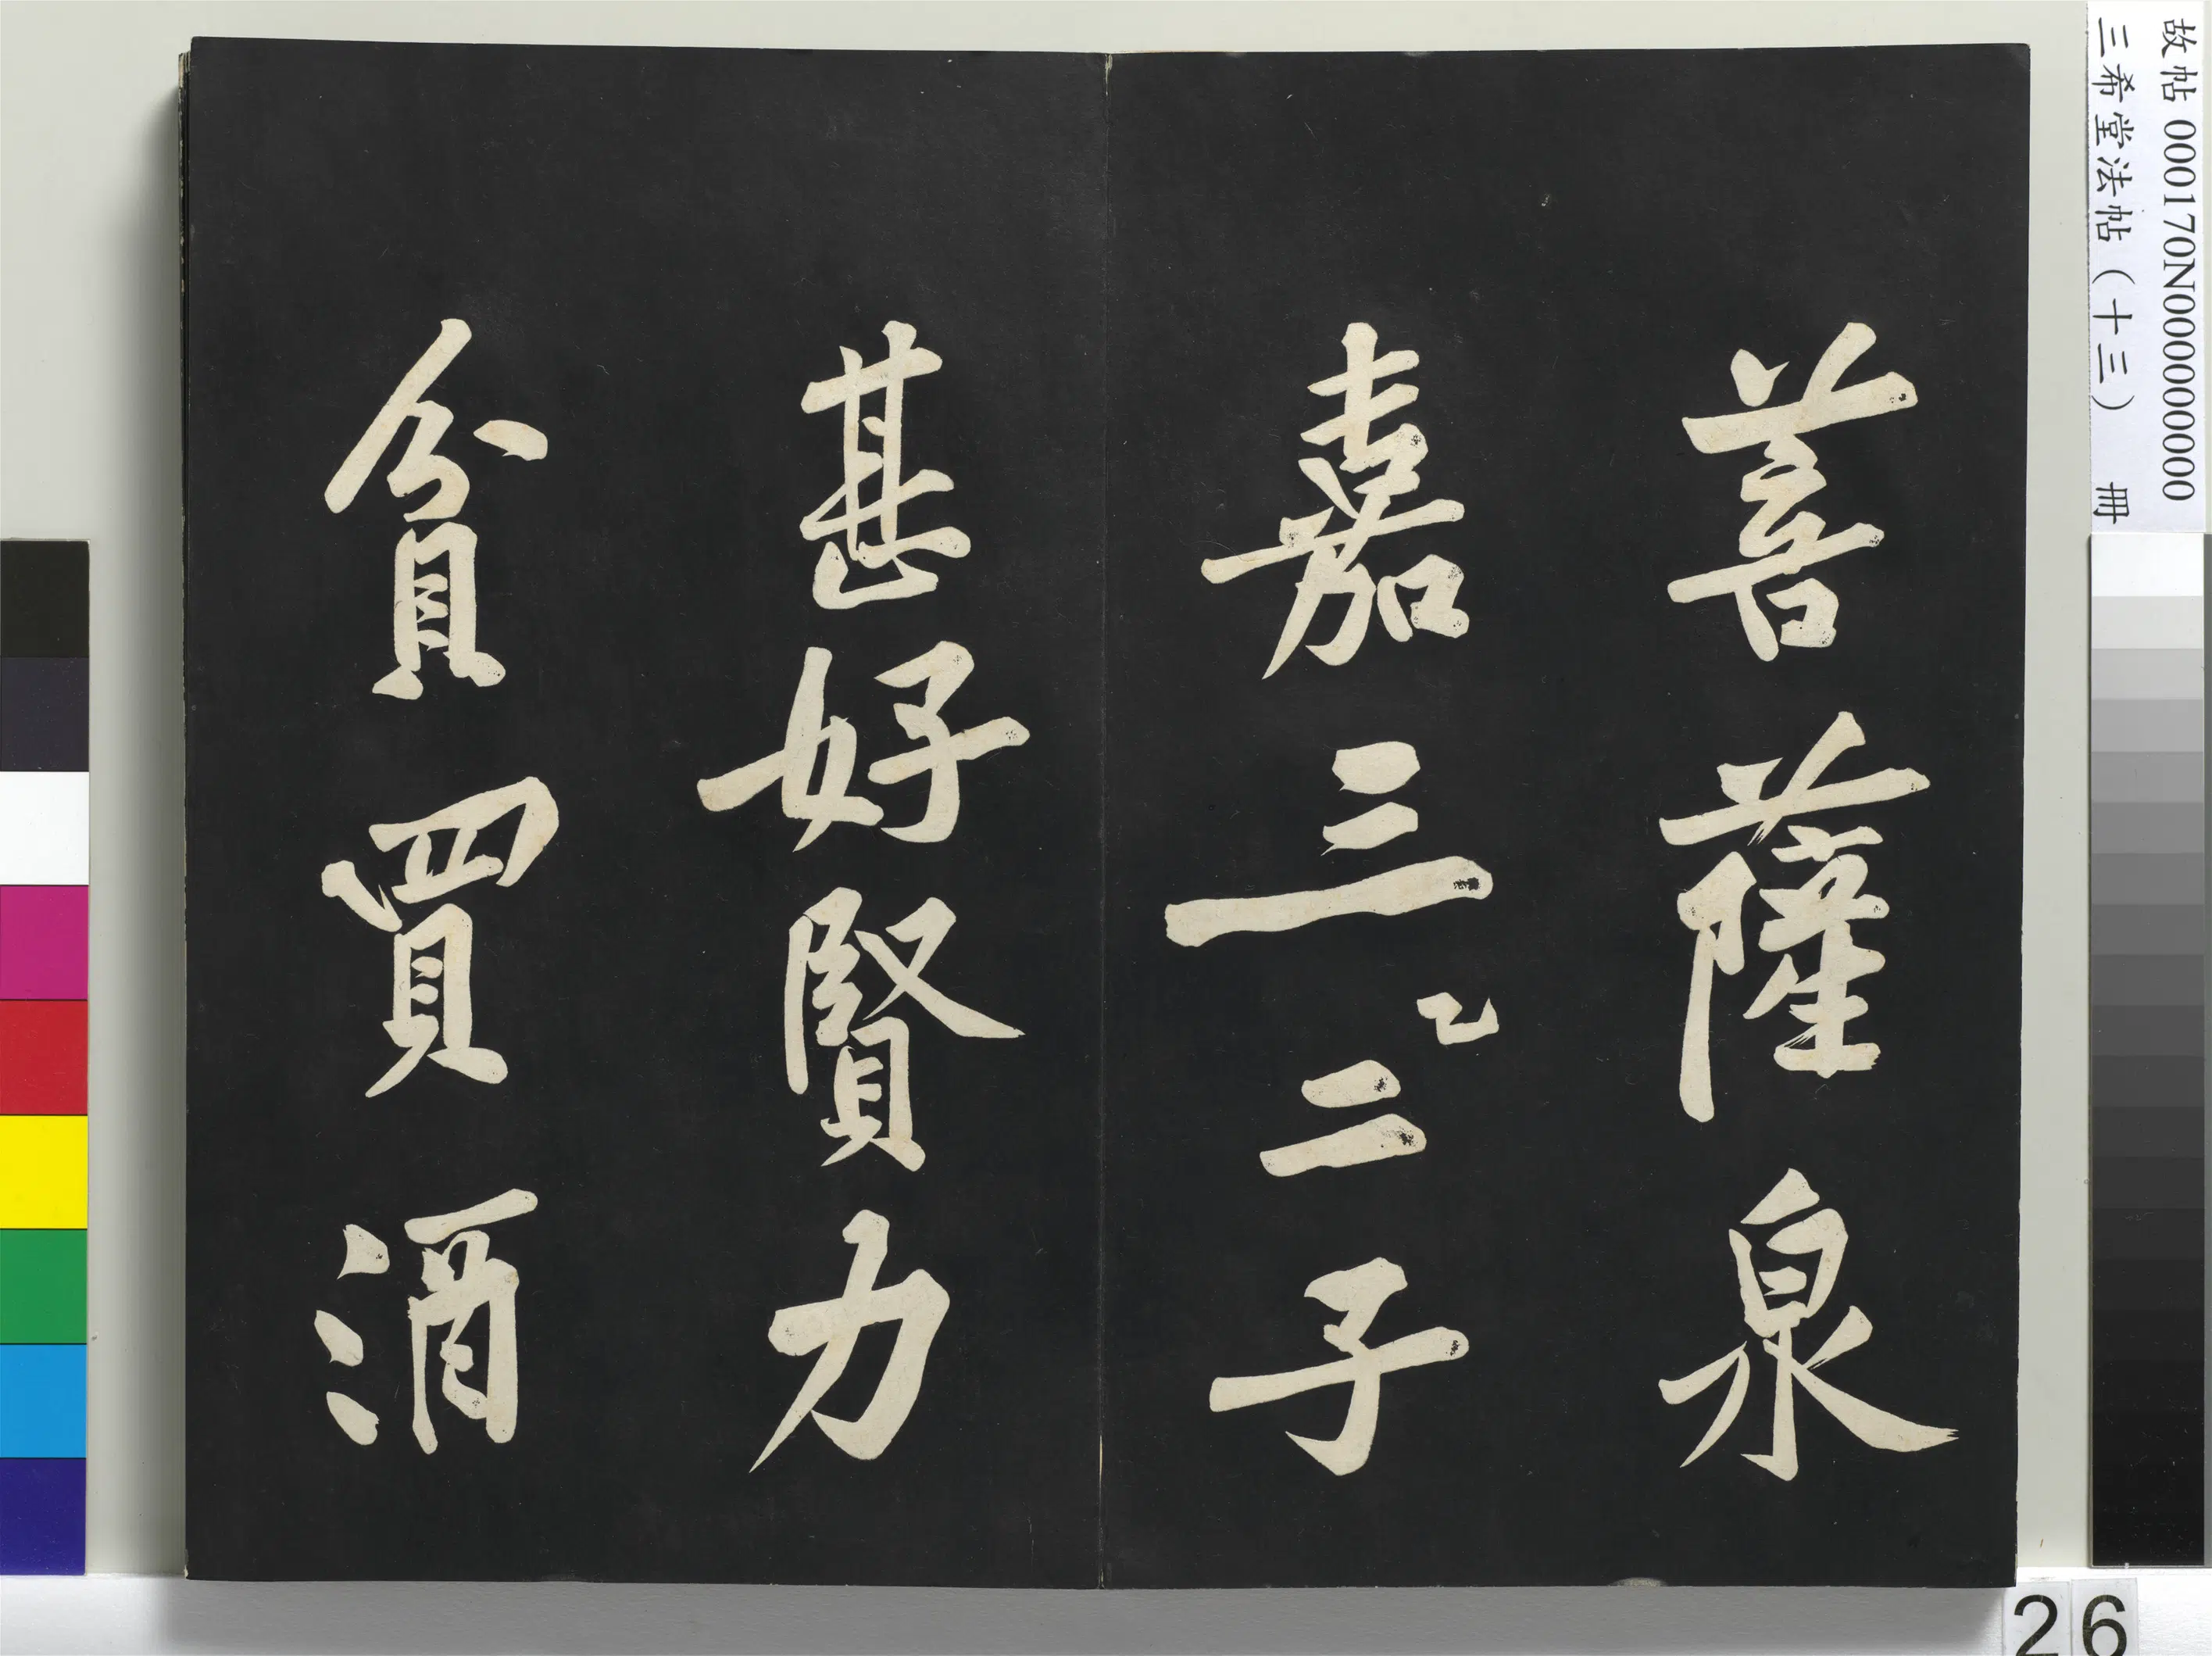 菩薩泉
嘉三二乙子
甚好賢力
貧買酒
故帖 000170N000000000
三希堂法帖（十三） 冊
26